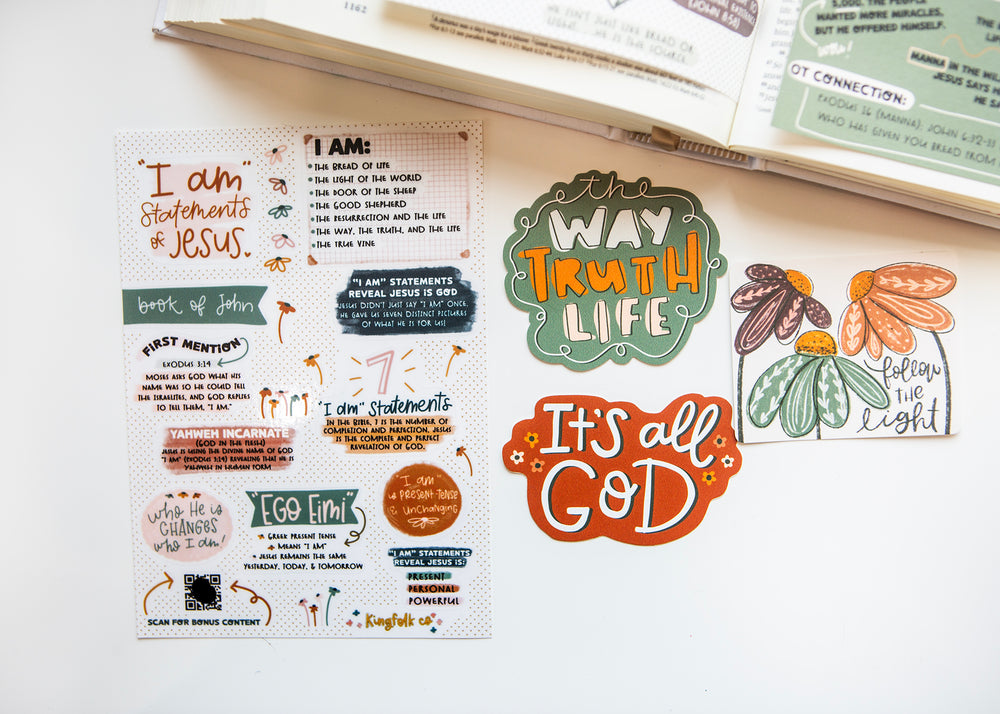 1162
5,000, THE PEOPLE
WANTED MORE MIRACLES.
BUT HE OFFERED HIMSELF.
MANNA IN THE
JESUS SAYS
HE
OT CONNECTION:
EXODUS 16 (MANNA); JOHN 6:32-33
WHO HAS GIVEN YOU BREAD FROM
JOHN 8:58)
HE IS THE SOURCE.
"I am"
Statements
of Jesus.
I AM:
THE BREAD OF LIFE
THE LIGHT OF THE WORLD
THE DOOR OF THE SHEEP
THE GOOD SHEPHERD
THE RESURRECTION AND THE LIFE
THE WAY, THE TRUTH, AND THE LIFE
THE TRUE VINE
book of John
"I AM" STATEMENTS
REVEAL JESUS IS GOD
JESUS DIDN'T JUST SAY "I AM" ONCE,
HE GAVE US SEVEN DISTINCT PICTURES
OF WHAT HE IS FOR US!
FIRST MENTION
EXODUS 3:14
MOSES ASKS GOD WHAT HIS
NAME WAS SO HE COULD TELL
THE ISRAELITES, AND GOD REPLIES
TO TELL THEM, "I AM."
7
"I am" Statements
IN THE BIBLE, 7 IS THE NUMBER OF
COMPLETION AND PERFECTION. JESUS
IS THE COMPLETE AND PERFECT
REVELATION OF GOD.
YAHWEH INCARNATE
(GOD IN THE FLESH)
JESUS IS USING THE DIVINE NAME OF GOD
"I AM" (EXODUS 3:14) REVEALING THAT HE IS
YAHWEH IN HUMAN FORM
who He is
CHANGES
who I am!
"EGO Eimi"
GREEK PRESENT TENSE
MEANS "I AM"
JESUS REMAINS THE SAME
YESTERDAY, TODAY, & TOMORROW
"I am"
is PRESENT-TENSE
& UNCHANGING
"I AM" STATEMENTS
REVEAL JESUS IS:
PRESENT
PERSONAL
POWERFUL
SCAN FOR BONUS CONTENT
Kingfolk co
the
WAY
TRUTH
LIFE
It's all
GOD
follow
THE
light